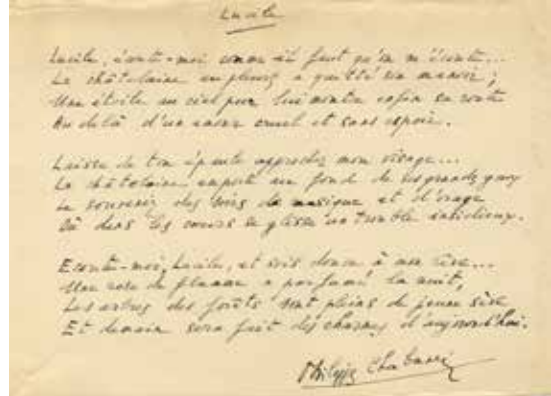 Lucile
Lucile, écoute-moi comme il faut qu'on m'écoute...
La châtelaine en pleurs a quitté son manoir ;
Une étoile au ciel pur lui montre enfin sa route
Au delà d'un amour cruel et sans espoir.
Laisse de ton épaule approcher mon visage...
La châtelaine emporte au fond de ses grands yeux
Le souvenir des soirs de musique et d'orage
Où dans les cœurs se glisse un trouble insidieux.
Écoute-moi, Lucile, et sois douce à mon rêve...
Une rose de flamme a parfumé la nuit,
Les arbres des forêts sont pleins de jeune sève
Et demain sera fait des charmes d'aujourd'hui.
Philippe Chabaneix